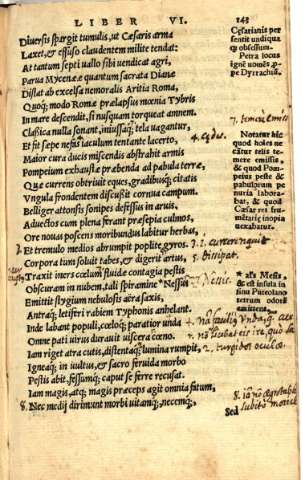 LIBER VI. 143
Diversis spargit tumulis, ut Cæsaris arma
Laxet, & effuso claudentem milite tendat:
At tantum septi uallo sibi uendicat agri,
Parua Mycenææ quantum sacrata Dianæ
Distat ab excelsa nemoralis Aritia Roma,
Quoq; modo Romæ prælapsus mœnia Tybris
In mare descendit, si nusquam torqueat amnem.
Claßica nulla sonant, iniussaq́; tela uagantur,
Et fit sæpe nefas iaculum tentante lacerto,
Maior cura duces miscendis abstrahit armis
Pompeium exhaustæ præbenda ad pabula terræ,
Quæ currens obtriuit eques, gradibusq; citatis
Vngula frondentem discußit cornea campum.
Belliger attonsis sonipes defessus in aruis,
Aduectos cum plena ferant præsepia culmos,
Ore nouas poscens moribundus labitur herbas,
Et tremulo medios abrumpit poplite gyros.
Corpora dum soluit tabes, & digerit artus,
Traxit iners cœlum fluidæ contagia pestis
Obscuram in nubem, tali spiramine Nesis
Emittit stygium nebulosis aëra saxis,
Antraq; letiferi rabiem Typhonis anhelant.
Inde labant populi, cœloq; paratior unda
Omne pati uirus durauit uiscera cœno.
Iam riget atra cutis, distentaq; lumina rumpit,
Igneaq; in uultus, & sacro feruida morbo
Pestis abit, fessumq; caput se ferre recusat.
Iam magis atq; magis præceps agit omnia fatum,
Nec medij dirimunt morbi uitamq;, necemq;,
Sed
Cæsarianis per
sentit undiqua
q; obsessum.
Petra locus
ignē nouẽs, ꝓ
pe Dyrrachiũ.
Notatur hic
quod hoīes ne
cātur telis te
mere emissis,
& quod Pom-
peius peste &
pabulorum pe
nuria labora-
bat, & quod
Cæsar ret fru-
mētariæ inopia
uexabatur.
& est insula in
sinu Puteolano
tetrum odorē
emittens.
4. Equus.
5. Dissipat.